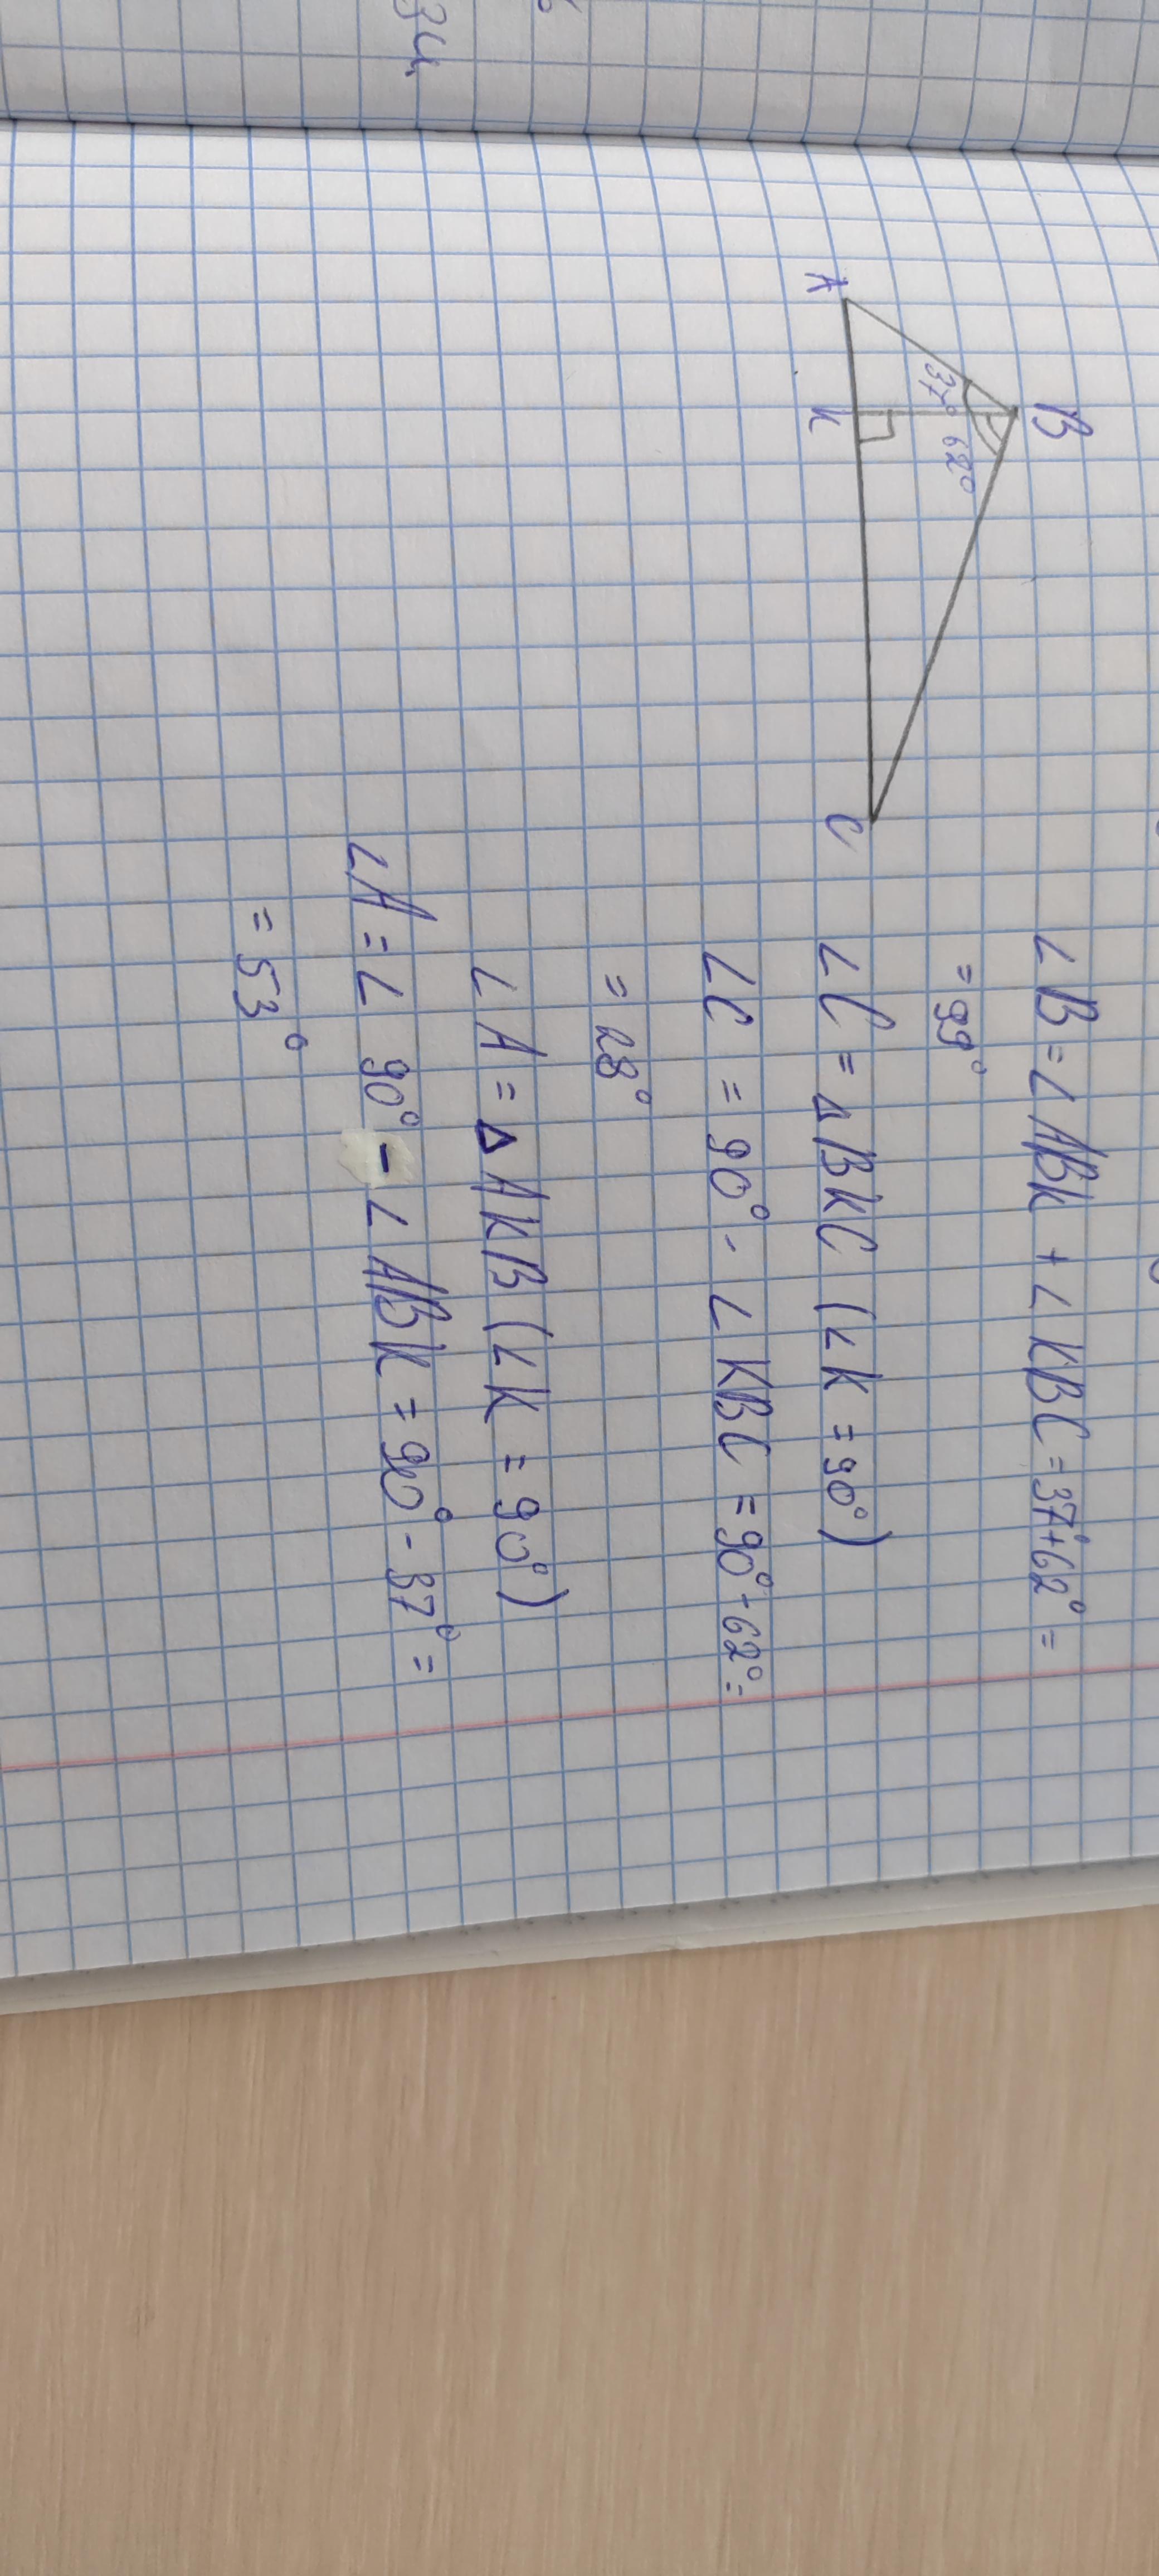 B
37° 62°
A K C
∠B = ∠ABK + ∠KBC = 37°+62° =
= 99°
∠C = ΔBKC (∠K = 90°)
∠C = 90° - ∠KBC = 90° - 62° =
= 28°
∠A = ΔAKB (∠K = 90°)
∠A = ∠ 90° - ∠ABK = 90° - 37° =
= 53°